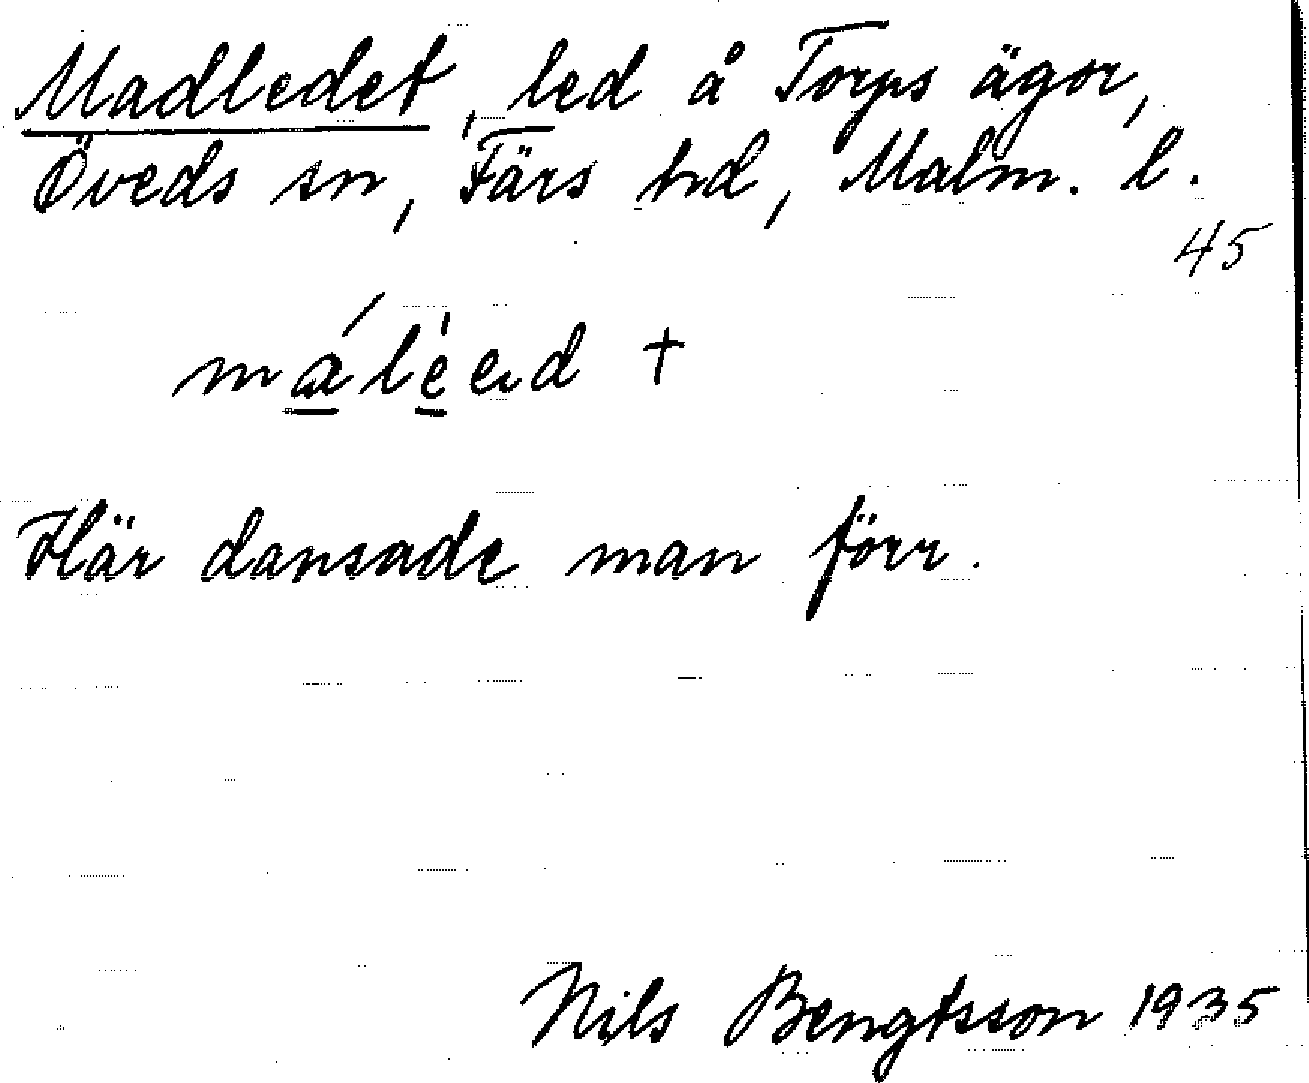 Madledet, led å Torps ägor,
Öveds sn, Färs hd, Malm. l.
45
Här dansade man förr.
Nils Bengtsson 1935